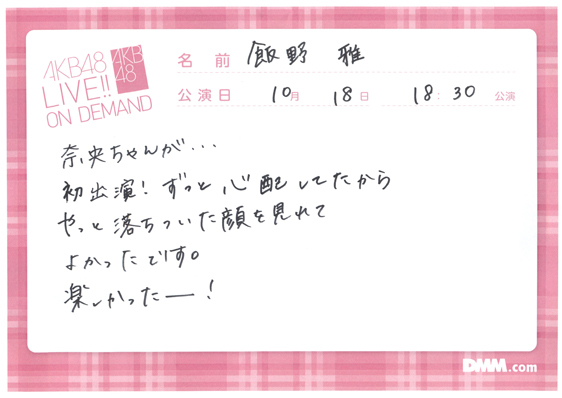 AKB48
LIVE!!
ON DEMAND
AKB
48
名前 飯野 雅
公演日 10月 18日 18:30 公演
奈央ちゃんが・・・
初出演！ずっと心配してたから
やっと落ちついた顔を見れて
よかったです。
楽しかったー！
DMM.com